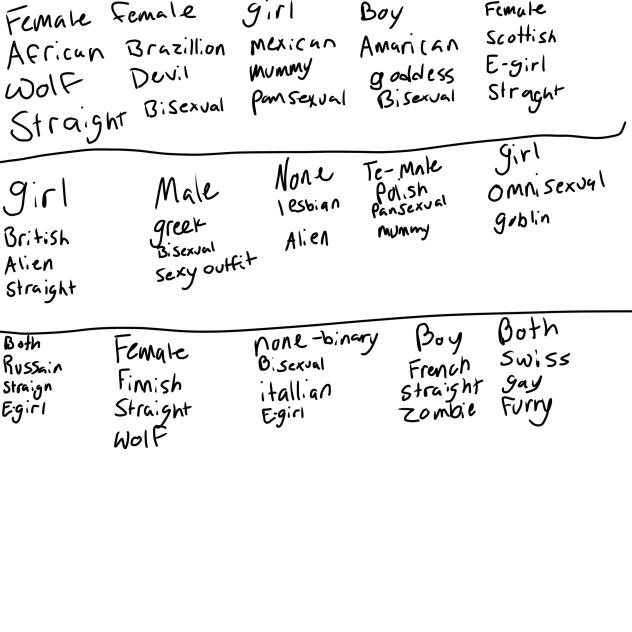 Female
African
Wolf
Straight
Female
Brazillion
Devil
Bisexual
girl
Mexican
Mummy
pansexual
Boy
Amarican
goddess
Bisexual
Female
Scottish
E-girl
Straght
girl
British
Alien
Straight
Male
greek
Bisexual
Sexy outfit
None
lesbian
Alien
Te-male
Polish
Pansexual
mummy
girl
omnisexual
goblin
Both
Russain
Straign
E-girl
Female
Finnish
Straight
Wolf
none-binary
Bisexual
itallian
E-girl
Boy
French
Straight
Zombie
Both
Swiss
gay
Furry